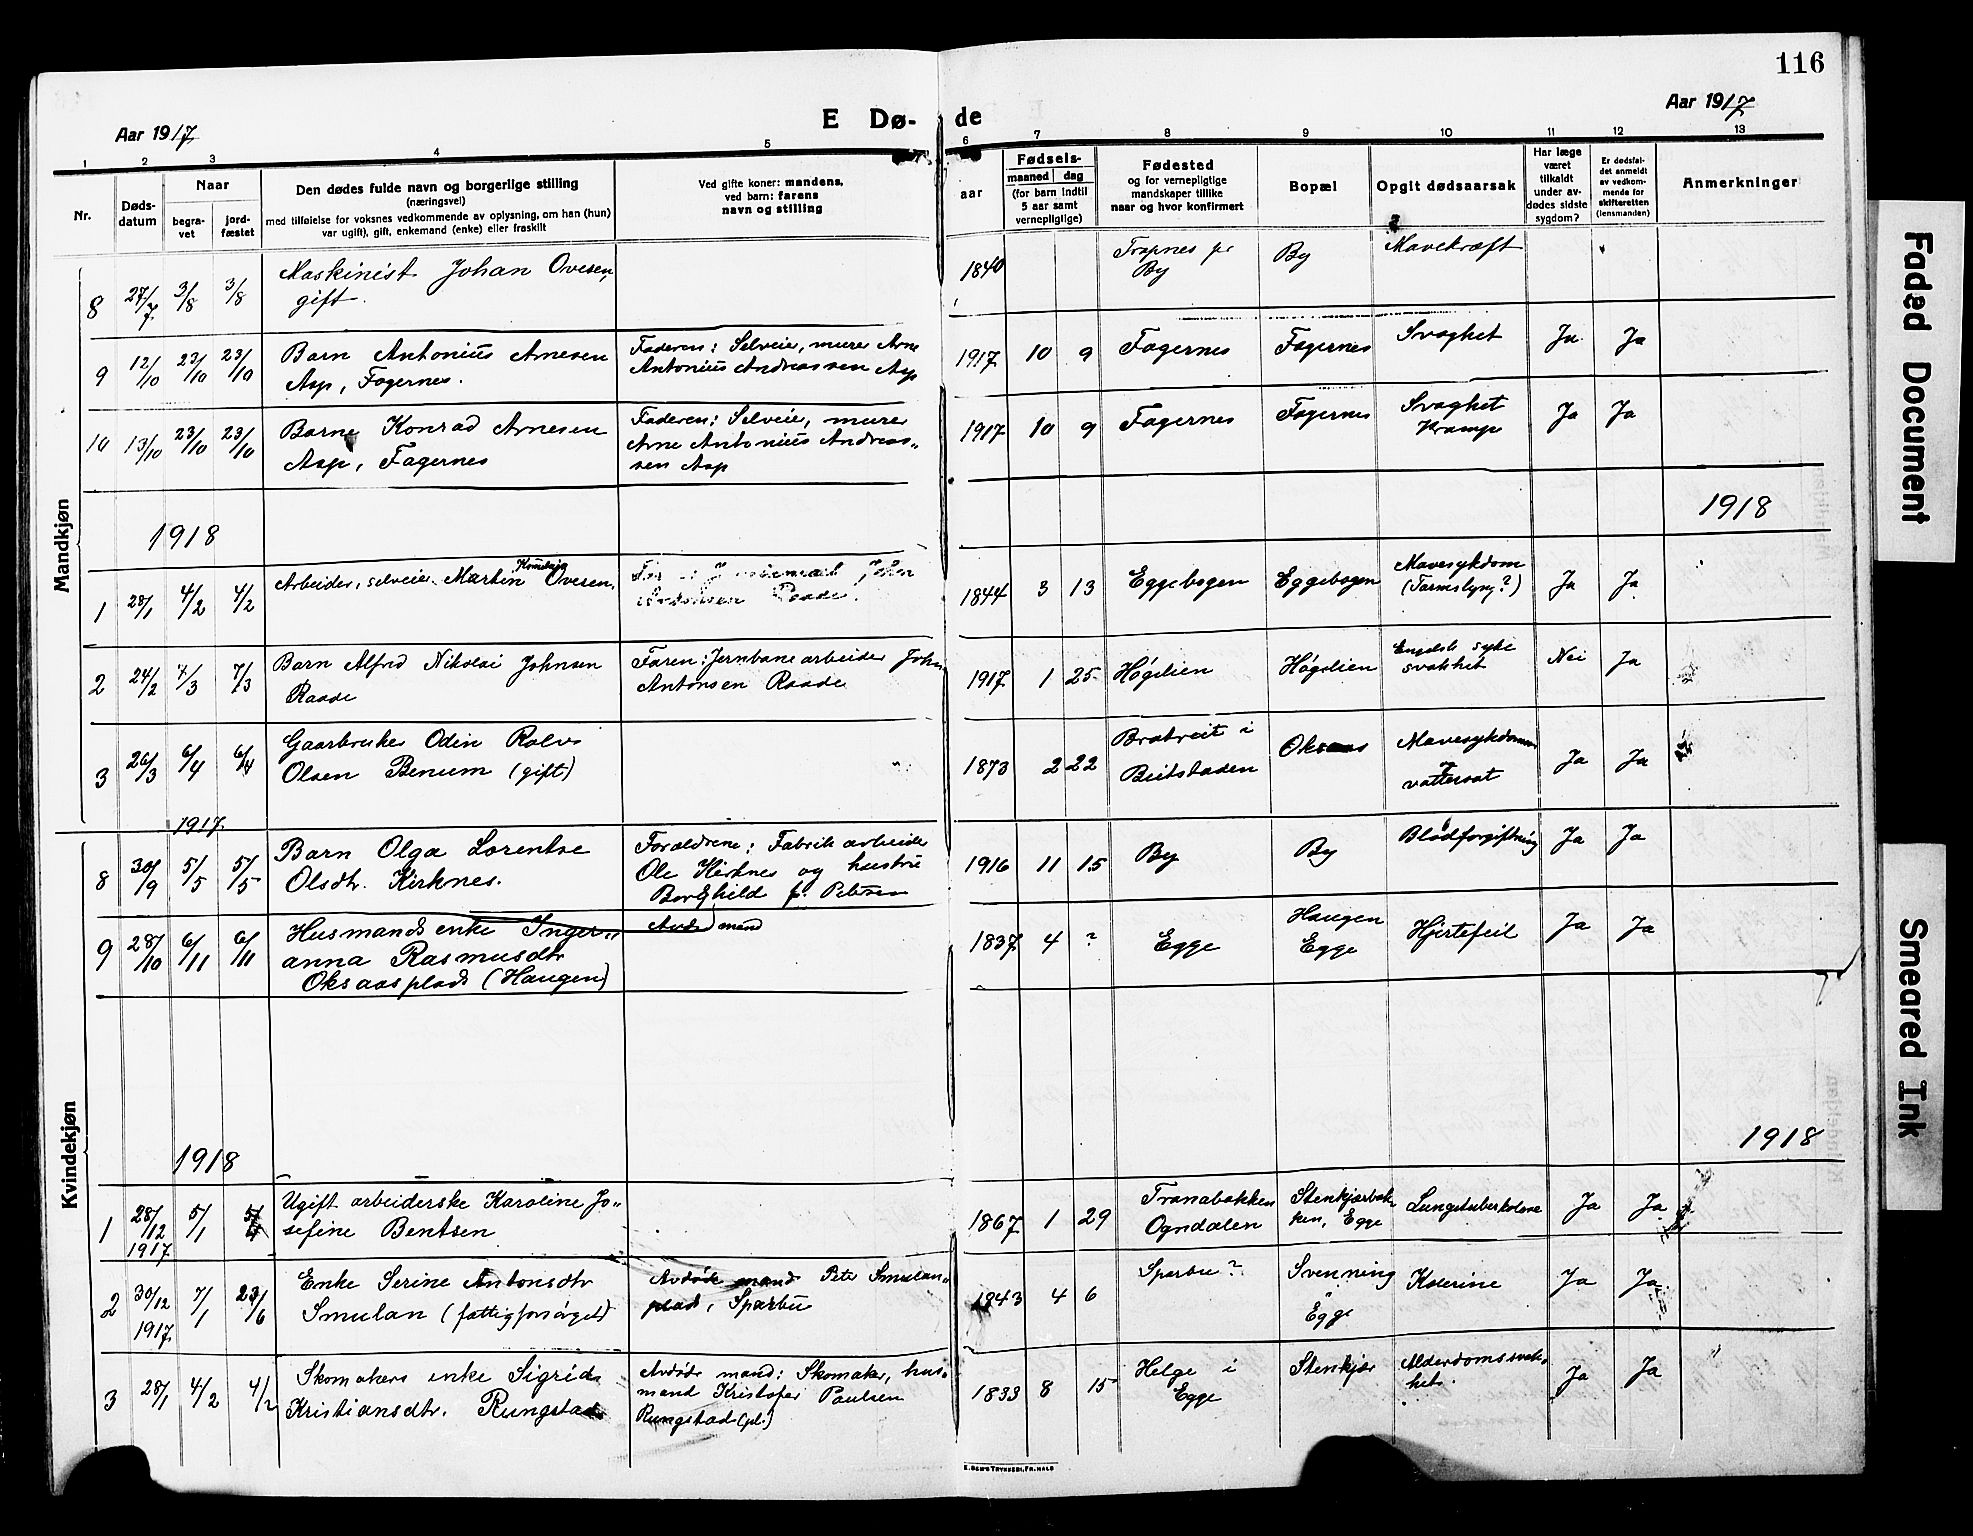 116
Aar 1917
E Dø-
de
Aar 1917
1 2 3 4 5 6 7 8 9 10 11 12 13
Nr.
Døds-
datum
Naar
begra-
vet
jord-
fæstet
Den dødes fulde navn og borgerlige stilling
(næringsvei)
med tilføielse for voksnes vedkommende av oplysning, om han (hun)
var ugift), gift, enkemand (enke) eller fraskilt
Ved gifte koner: mandens,
ved barn: farens
navn og stilling
Fødsels-
aar
maaned dag
(for barn indtil
5 aar samt
vernepligtige)
Fødested
og for vernepligtige
mandskaper tillike
naar og hvor konfirmert
Bopæl
Opgit dødsaarsak
Har læge
været
tilkaldt
under av-
dødes sidste
sygdom?
Er dødsfal-
det anmeldt
av vedkom-
mende for
skifteretten
(lensmanden)
Anmerkninger
Mandkjøn
8 27/7 3/8 3/8 Maskinist Johan Ovesen,
gift.
1840 Trapnes pr
By
By
Mavekræft
9 12/10 23/10 23/10 Barn Antonius Arnesen
Asp, Fagernes.
Faderen: Selveier, murer Arne
Antonius Andreassen Asp
1917 10 9 Fagernes Fagernes Svaghet Ja Ja
10 13/10 23/10 23/10 Barn Konrad Arnesen
Asp, Fagernes
Faderen: Selveier, murer
Arne Antonius Andreas-
sen Asp
1917 10 9 Fagernes Fagernes Svaghet
Krampe
Ja Ja
1918 1918
1 28/1 4/2 4/2 Arbeider, selveier Martin Ovesen.
John
Raade.
1844 3 13 Eggebogen Eggebogen Mavesykdom
(Tarmslyng?)
Ja Ja
2 24/2 7/3 7/3 Barn Alfred Nikolai Johnsen
Raade
Faren: Jernbanearbeider John
Antonsen Raade
1917 1 25 Høgelien Høgelien Engelsk syke
svakhet
Nei Ja
3 26/3 6/4 6/4 Gaarbruker Odin Rolvs
Olsen Benum (gift)
1873 2 22 Brabreit i
Beitstaden
Oksaas
Mavesykdom
vattersot
Ja Ja
1917
Kvindekjøn
8 30/9 5/5 5/5 Barn Olga Lorentse
Olsdtr. Kirknes.
Forældrene: Fabrik arbeider
Ole Kirknes og hustru
Borghild f. Petersen
1916 11 15 By By Blodforgiftning Ja Ja
9 28/10 6/11 6/11 Husmands enke Inger-
anna Rasmusdtr
Oksaasplads (Haugen)
Avdøde mand
1837 4 ? Egge Haugen
Egge
Hjertefeil Ja Ja
1918 1918
1 28/12
1917
5/1 Ugift arbeiderske Karoline Jo-
sefine Bentsen
1867 1 29 Tranabakken
Ogndalen
Stenkjærbak-
ken, Egge
Lungetuberkolose Ja Ja
2 30/12
1917
7/1 23/6 Enke Serine Antonsdtr
Smulan (fattigforsørget)
Avdøde mand Peter Smulan-
plads, Sparbu
1843 4 6 Sparbu? Svenning
Egge
Kolerine Ja Ja
3 28/1 4/2 4/2 Skomakers enke Sigrid
Kristiansdtr. Rungstad
Avdøde mand: Skomaker, hus-
mand Kristofer Paulsen
Rungstad (pl.)
1833 8 15 Helge i
Egge
Stenkjær
Alderdomssvak-
het.
Ja Ja
E. SEM'S TRYKKERI, FR.HALD
Faded Document
Smeared Ink